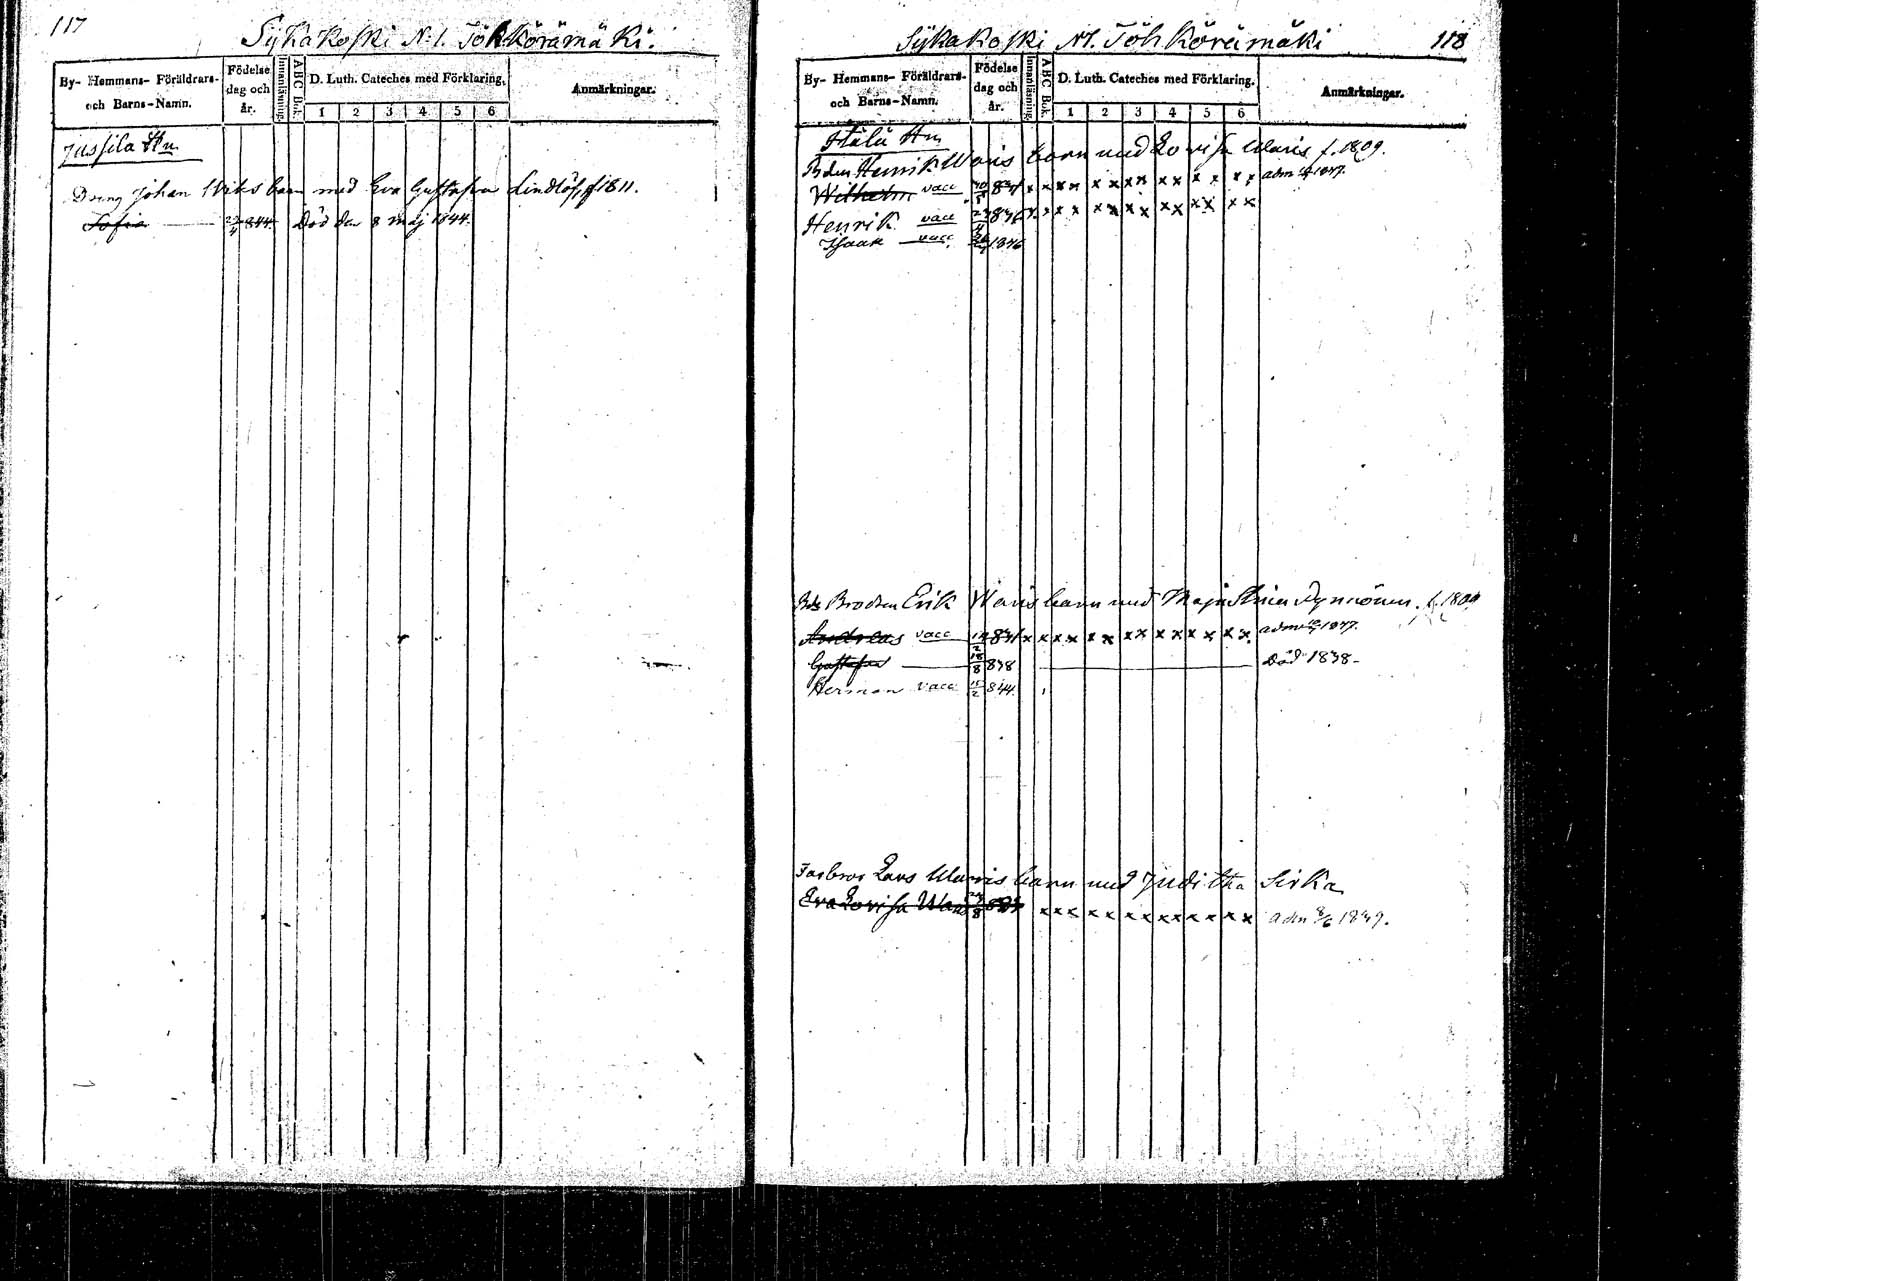 117
Sykäkoski N:1. Töhkörämäki.
By- Hemmans- Föräldrars-
och Barns-Namn.
Födelse
dag och
år.
Innanläsning
ABC Bok.
D. Luth. Cateches med Förklaring.
1 2 3 4 5 6
Anmärkningar.
Jussila Hn
Dräng Johan Wiks barn med Eva Gustafva Lindlöf f 1811.
Sofia 844. Död den 8 Maj 1844.
Sykäkoski N1. Töhkörämäki
118
By- Hemmans- Föräldrars-
och Barns-Namn.
Födelse
dag och
år.
Innanläsning
ABC Bok.
D. Luth. Cateches med Förklaring.
1 2 3 4 5 6
Anmärkningar.
Hälä Hn
Bden Henrik Waris barn med Lovisa Waris f. 1809.
Wilhelm vacc x x x x x x x x x x x x x x adm 1847.
Henrik vacc 836 x x x x x x x x x x x x x x
Isaak vacc. 1846
Brodren Erik Waris barn med Maja Stina Pynnönen. f. 1809
Andreas vacc x x x x x x x x x x x x x x adm 1847.
Gustafva 18/8 838 Död 1838-
Herman vacc 15/2 844.
Farbror Lars Waris barn med Juditha Sirka
Eva Lovisa Waris x x x x x x x x x x x x x adm 8/6 1849.